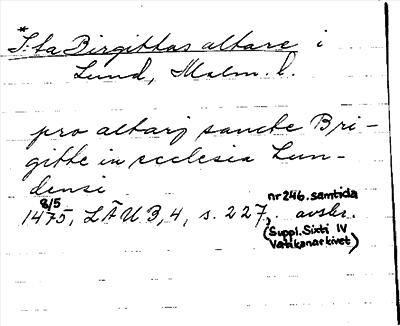 *
S:ta Birgittas altare i
Lund, Malm. l.
pro altarj sancte Bri-
gitte in ecclesia Lun-
densi
8/5
1475, LÄUB, 4, s. 227, nr 246. samtida avskr.
(Suppl. Sixti IV
Vatikanarkivet)